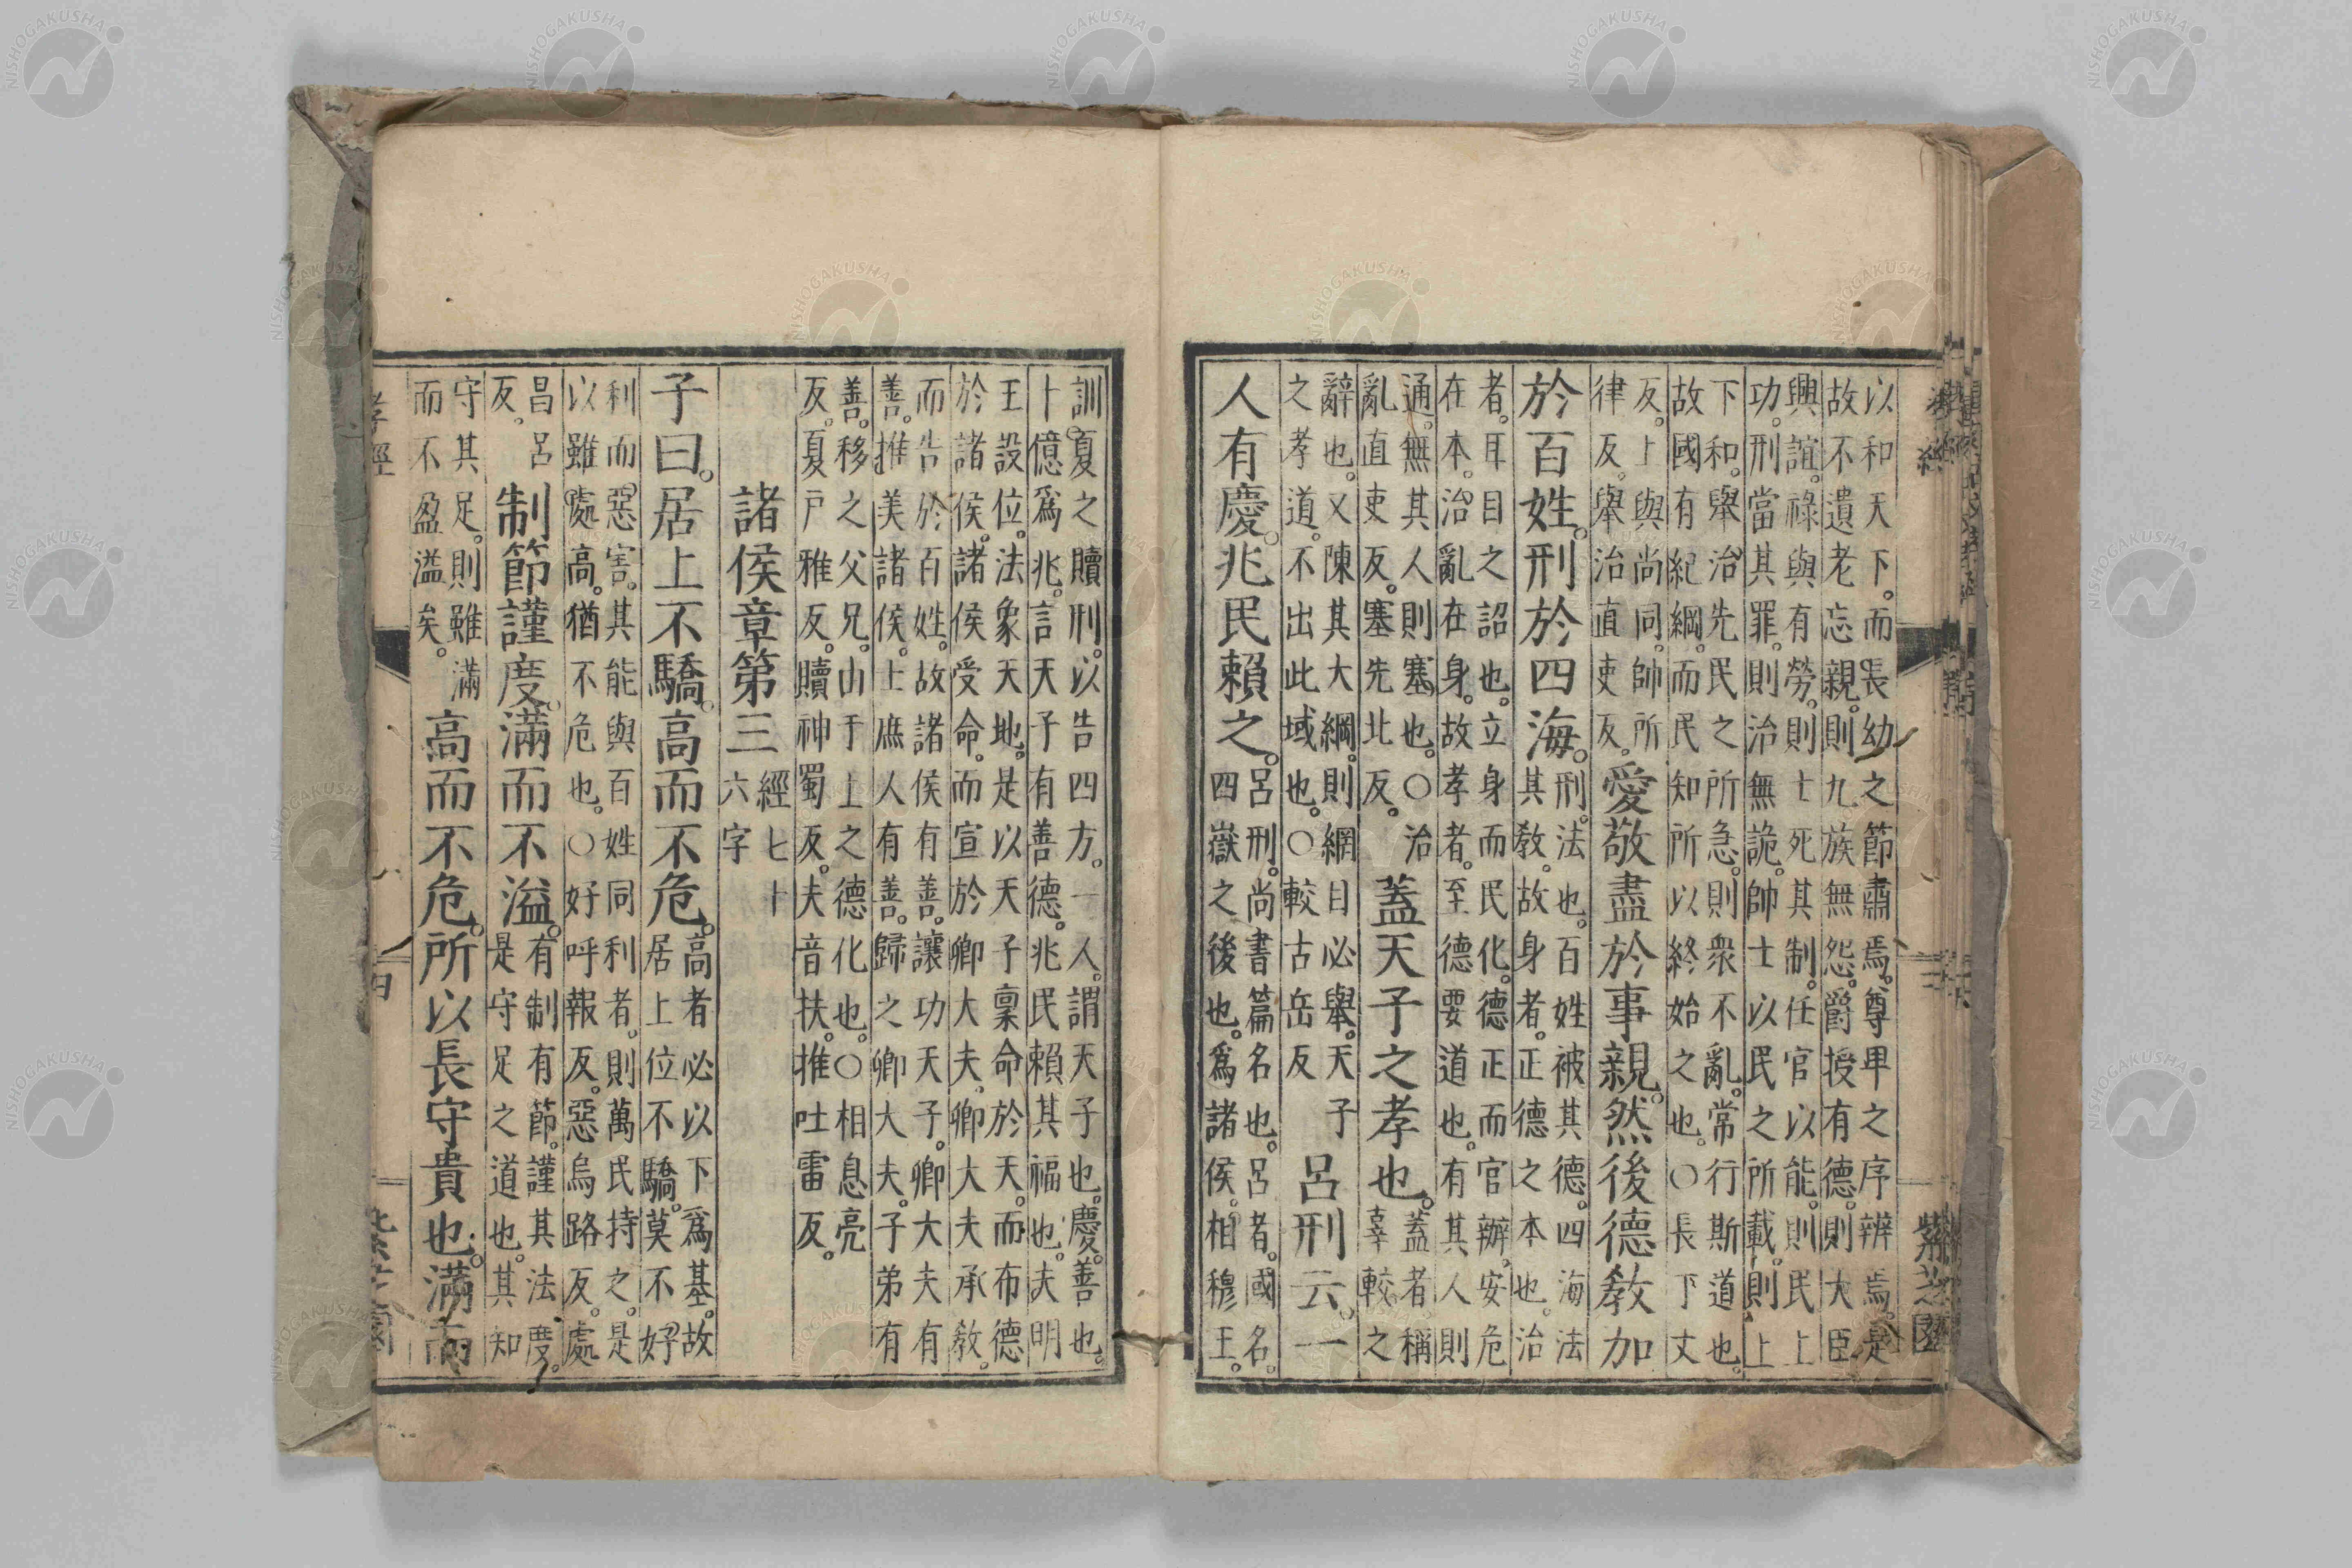 以和天下。而長幼之節肅焉。尊卑之序辨焉。是
故不遺老忘親。則九族無怨。爵授有德。則大臣
興誼。祿與有勞。則士死其制。任官以能。則民上
功。刑當其罪。則治無詭。帥士以民之所載。則上
下和。舉治先民之所急。則衆不亂。常行斯道也。
故國有紀綱。而民知所以終始之也。○長丁丈
反。上與尚同。帥所
律反。舉治直吏反。
愛敬盡於事親。然後德教加
於百姓。刑於四海。
刑。法也。百姓被其德。四海法
其教。故身者。正德之本也。治
者。耳目之詔也。立身而民化。德正而官辦。安危
在本。治亂在身。故孝者。至德要道也。有其人則
通。無其人則塞也。○治
亂直吏反。塞先北反。
蓋天子之孝也。
蓋者稱
辜較之
辭也。又陳其大綱。則綱目必舉。天子
之孝道。不出此域也。○較古岳反
呂刑云。一
人有慶。兆民賴之。
呂刑。尚書篇名也。呂者。國名。
四嶽之後也。爲諸侯。相穆王。
訓夏之贖刑。以告四方。一人。謂天子也。慶。善也。
十億爲兆。言天子有善德。兆民賴其福也。夫明
王設位。法象天地。是以天子稟命於天。而布德
於諸侯。諸侯受命。而宣於卿大夫。卿大夫承教。
而告於百姓。故諸侯有善。讓功天子。卿大夫有
善。推美諸侯。士庶人有善。歸之卿大夫。子弟有
善。移之父兄。由于上之德化也。○相息亮
反。夏戸雅反。贖神蜀反。夫音扶。推吐雷反。
諸侯章第三
經七十
六字
子曰。居上不驕。高而不危。
高者必以下爲基。故
居上位不驕。莫不好
利而惡害。其能與百姓同利者。則萬民持之。是
以雖處高。猶不危也。○好呼報反。惡烏路反。處
昌呂
反。
制節謹度。滿而不溢。
有制有節。謹其法度。
是守足之道也。其知
守其足。則雖滿
而不盈溢矣。
高而不危。所以長守貴也。滿而
孝經
四
紫芝園
紫芝園